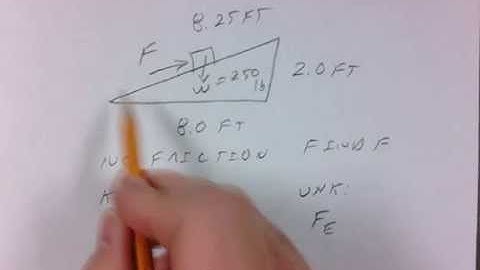 8.25 FT
F
W = 250 lb
2.0 FT
8.0 FT
NO FRICTION FIND F
K UNK:
F_E